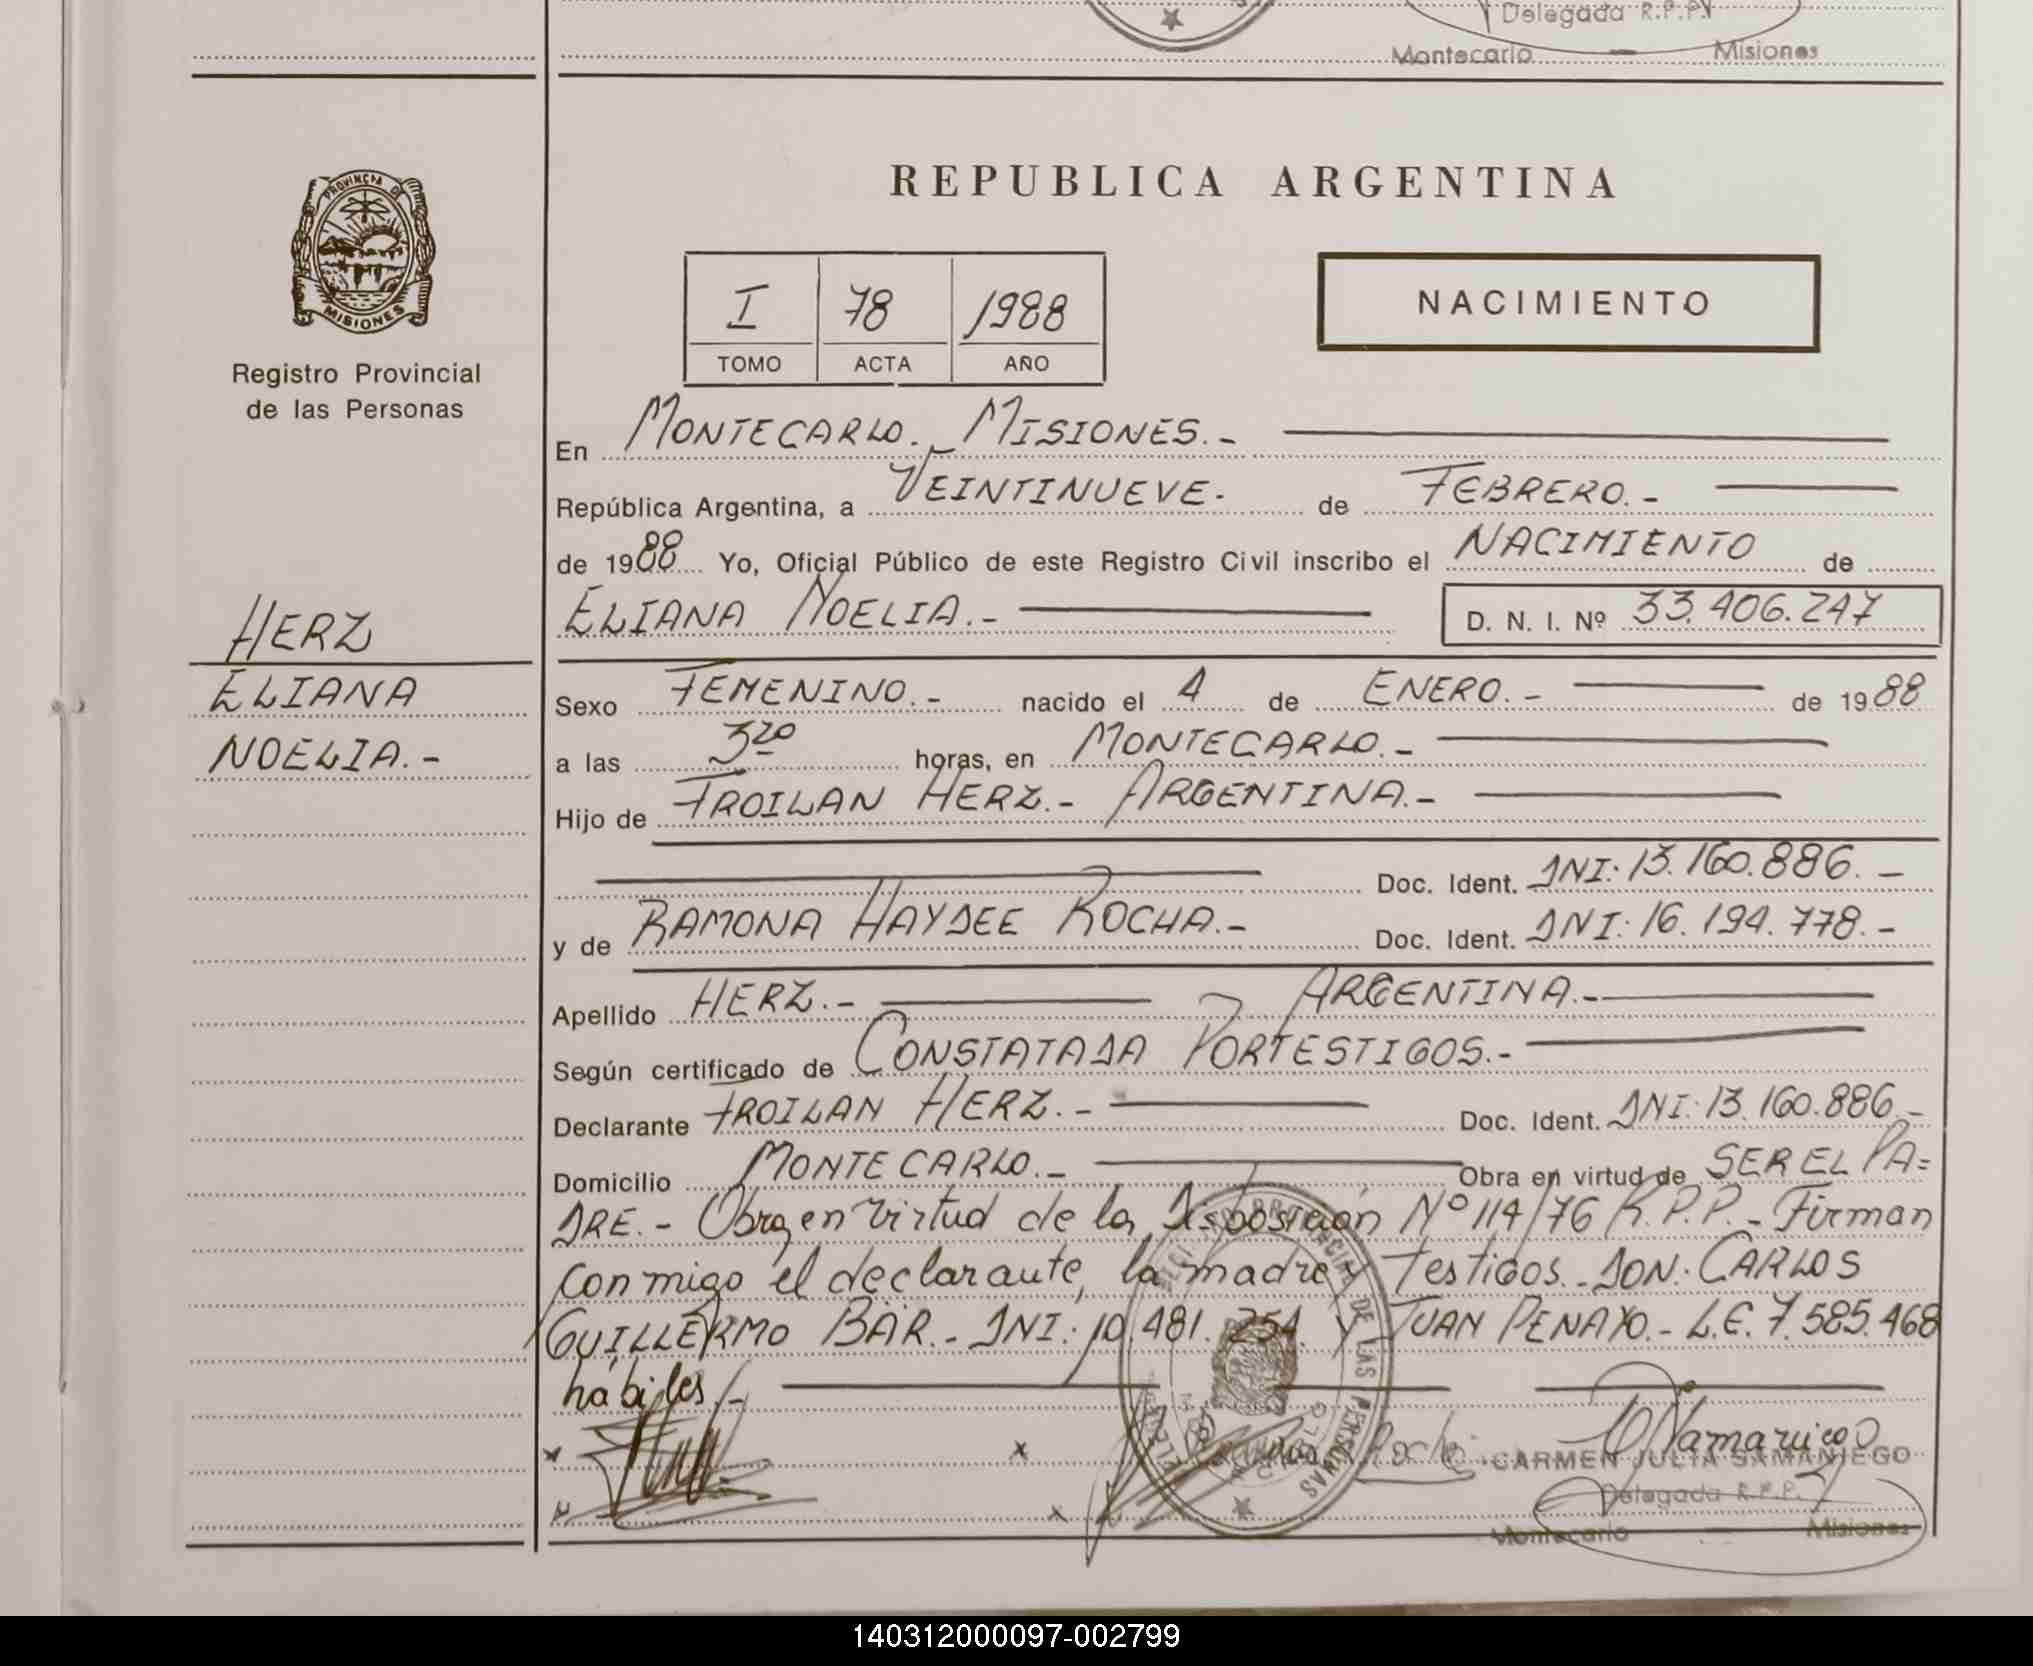 Delegada R.P.P.
Montecarlo Misiones
PROVINCIA DE
MISIONES
Registro Provincial
de las Personas
HERZ
ELIANA
NOELIA.-
REPUBLICA ARGENTINA
I 78 1988
TOMO ACTA AÑO
NACIMIENTO
En MONTECARLO. MISIONES.-
República Argentina, a VEINTINUEVE. de FEBRERO.-
de 1988 Yo, Oficial Público de este Registro Civil inscribo el NACIMIENTO de
ELIANA NOELIA.- D. N. I. Nº 33.406.247
Sexo FEMENINO.- nacido el 4 de ENERO.- de 1988
a las 3 20 horas, en MONTECARLO.-
Hijo de FROILAN HERZ.- ARGENTINA.-
Doc. Ident. DNI: 13.160.886.-
y de RAMONA HAYDEE ROCHA.- Doc. Ident. DNI: 16.194.778.-
Apellido HERZ.- ARGENTINA.-
Según certificado de CONSTATADA POR TESTIGOS.-
Declarante FROILAN HERZ.- Doc. Ident. DNI: 13.160.886.-
Domicilio MONTECARLO.- Obra en virtud de SER EL PA=
DRE.- Obra en virtud de la Disposición Nº 114/76 R.P.P.- Firman
conmigo el declarante, la madre y testigos. DON: CARLOS
GUILLERMO BÄR.- DNI: 10.481.254. y JUAN PENAYO.- L.E. 7.585.468
hábiles.-
CARMEN JULIA SAMANIEGO
Delegada R.P.P.
Montecarlo - Misiones
140312000097-002799